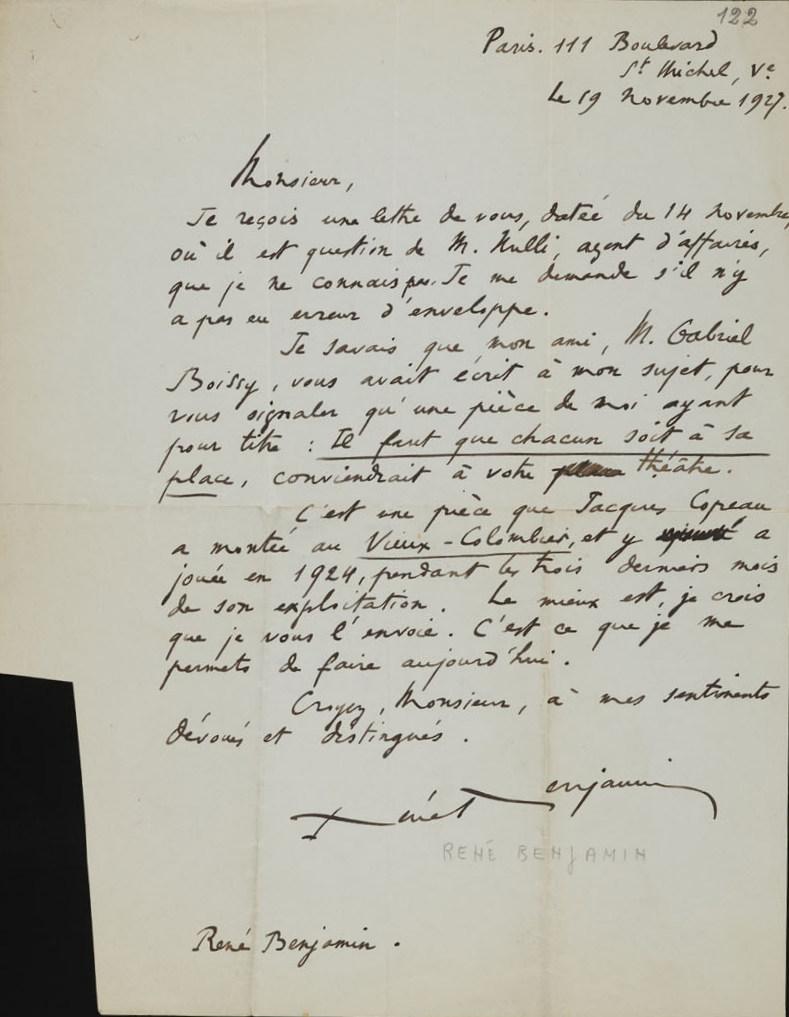 122
Paris. 111 Boulevard
St Michel, Ve
Le 19 novembre 1927.
Monsieur,
Je reçois une lettre de vous, datée du 14 novembre,
où il est question de M. Nulli, agent d'affaires,
que je ne connais pas. Je me demande s'il n'y
a pas eu erreur d'enveloppe.
Je savais que mon ami, M. Gabriel
Boissy, vous avait écrit à mon sujet, pour
vous signaler qu'une pièce de moi ayant
pour titre : Il faut que chacun soit à sa
place, conviendrait à votre théâtre.
C'est une pièce que Jacques Copeau
a montée au Vieux-Colombier, et y a
jouée en 1924, pendant les trois derniers mois
de son exploitation. Le mieux est, je crois
que je vous l'envoie. C'est ce que je me
permets de faire aujourd'hui.
Croyez, Monsieur, à mes sentiments
dévoués et distingués.
René Benjamin
RENÉ BENJAMIN
René Benjamin.